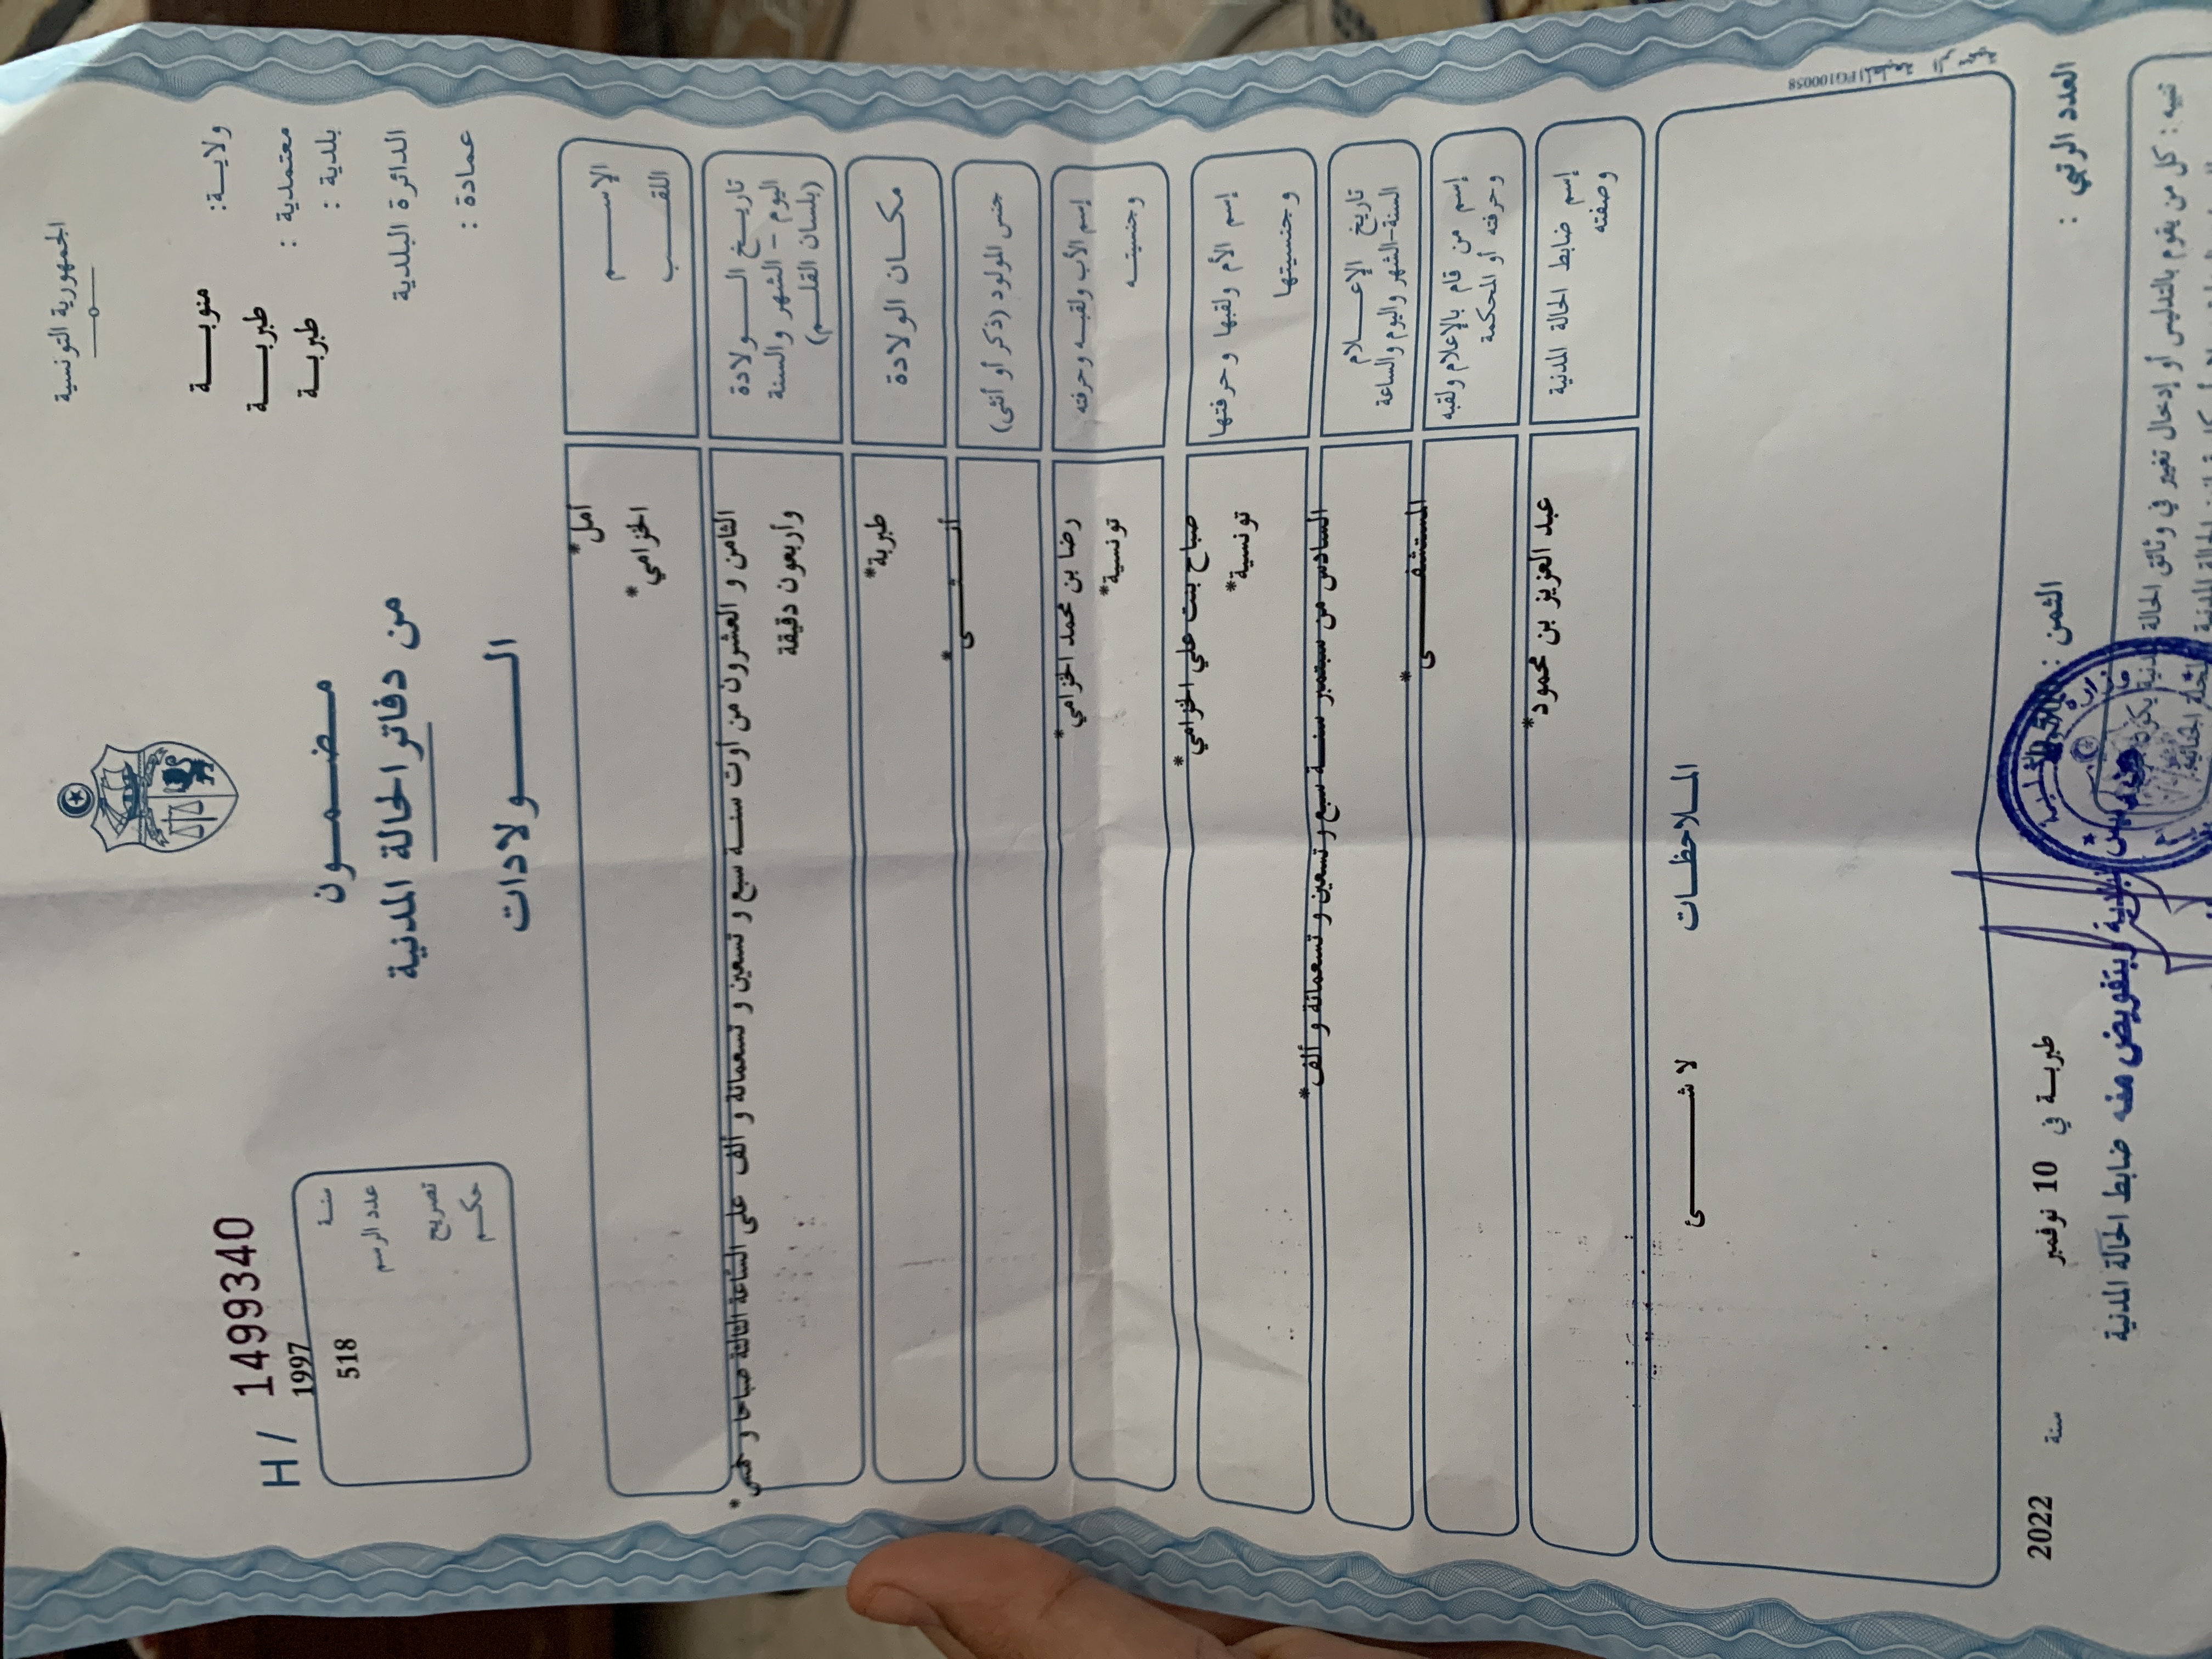 الجمهورية التونسية
ولاية: منوبة
معتمدية : طبربة
بلدية : طبربة
الدائرة البلدية
عمادة :
مضمون
من دفاتر الحالة المدنية
الولادات
H / 1499340
سنة 1997
عدد الرسم 518
تصريح
حكم
الإسم أمل*
اللقب الخزامي*
تاريخ الولادة
اليوم - الشهر والسنة
(بلسان القلم)
الثامن و العشرون من أوت سنة سبع و تسعين و تسعمائة و ألف على الساعة الثالثة صباحا و خمس*
وأربعون دقيقة
مكان الولادة طبربة*
جنس المولود (ذكر أو أنثى) أنثى*
إسم الأب ولقبه وحرفته رضا بن محمد الخزامي*
وجنسيته تونسية*
إسم الأم ولقبها وحرفتها صباح بنت علي الخزامي*
وجنسيتها تونسية*
تاريخ الإعلام
السنة-الشهر واليوم والساعة
السادس من سبتمبر سنة سبع و تسعين و تسعمائة و ألف*
إسم من قام بالإعلام ولقبه
وحرفته أو المحكمة
المستشفى*
إسم ضابط الحالة المدنية
وصفته
عبد العزيز بن محمود*
الملاحظات
لا شئ
PG100058
العدد الرتبي :
الثمن :
طبربة في 10 نوفمبر سنة 2022
ضابط الحالة المدنية
بتفويض منه
تنبيه : كل من يقوم بالتدليس أو إدخال تغيير في وثائق الحالة